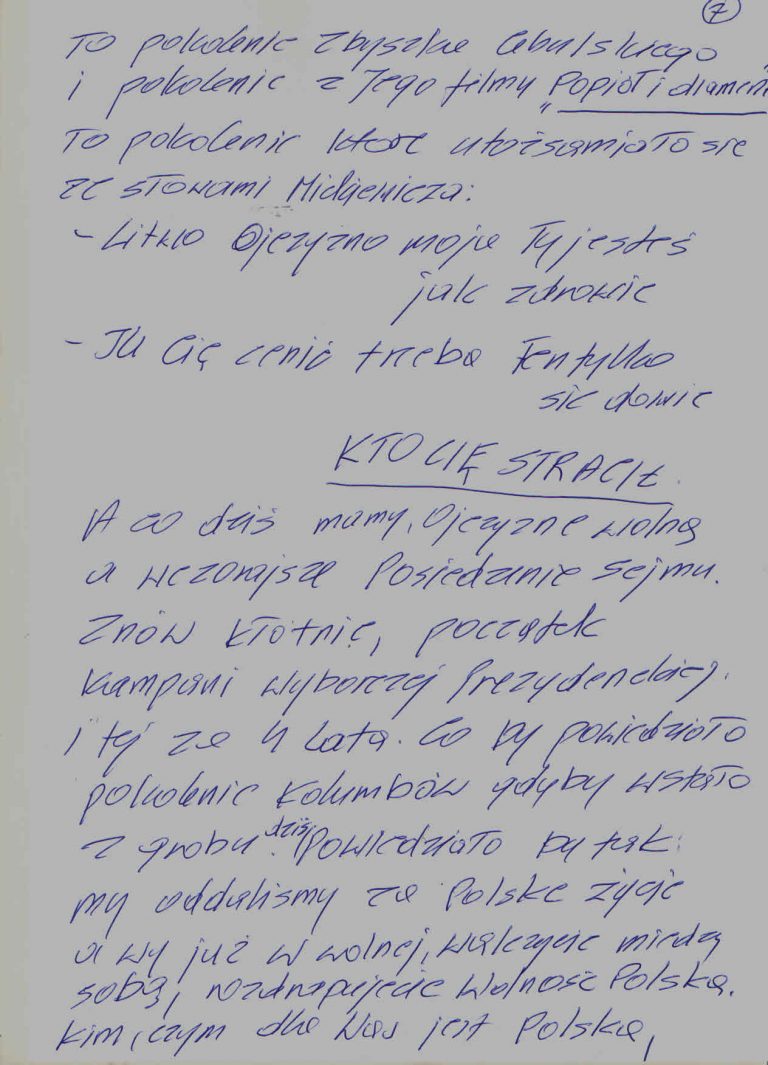 7
To pokolenie Zbyszka Cebulskiego
i pokolenie z Jego filmu "Popiół i diament
To pokolenie które utożsamiało się
ze słowami Mickiewicza:
- Litwo Ojczyzno moja Ty jesteś
jak zdrowie
- Ile Cię cenić trzeba Ten tylko
się dowie
KTO CIĘ STRACIŁ.
A co dziś mamy, Ojczyznę wolną
a wczorajsze Posiedzenie Sejmu.
Znów kłótnie, początek
kampani wyborczej Prezydenckiej.
i tej za 4 lata. Co by powiedziało
pokolenie Kolumbów gdyby wstało
z grobu dziś. Powiedziało by tak:
my oddaliśmy za Polskę życie
a wy już w wolnej, walczycie miedzy
sobą, rozdrapujecie Wolność Polską.
Kim, czym dla Was jest Polska,